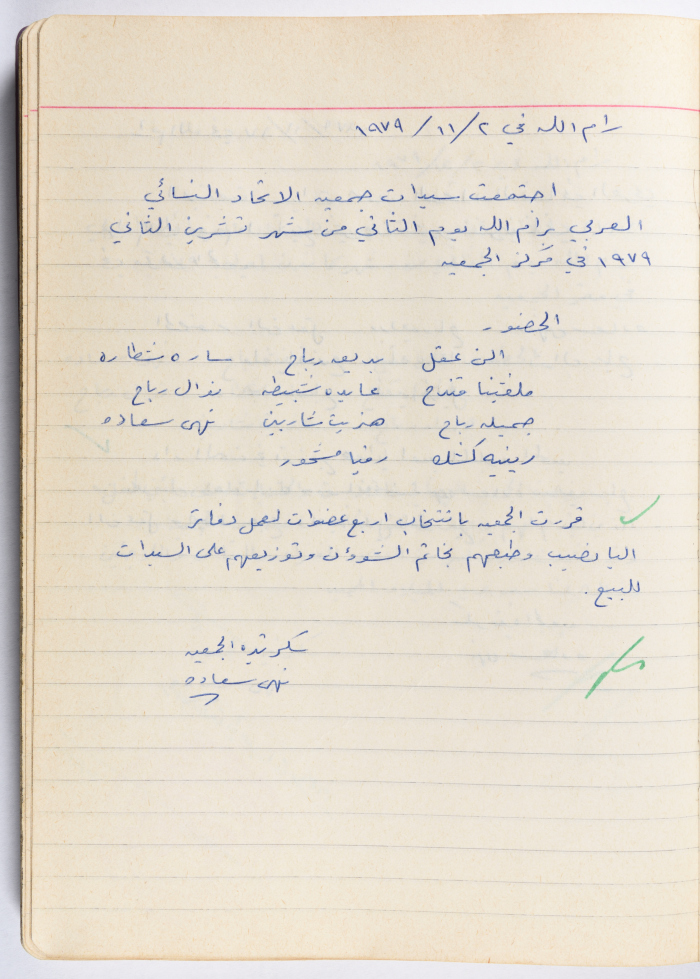 رام الله في ٢ / ١١ / ١٩٧٩
اجتمعت سيدات جمعيه الاتحاد النسائي
العربي برام الله يوم الثاني من شهر تشرين الثاني
١٩٧٩ في مركز الجمعيه
الحضور
الن عقل بديعه رباح ساره شطاره
ملفينا قندح عايده شبيطه نوال رباح
جميله رباح هنرييت شاربين نهى سعاده
رينيه كشك رضيا
قررت الجمعيه بانتخاب اربع عضوات لعمل دفاتر
اليانصيب وطبعهم بخاتم الشؤون وتوزيعهم على السيدات
للبيع .
سكرتيره الجمعيه
نهى سعاده